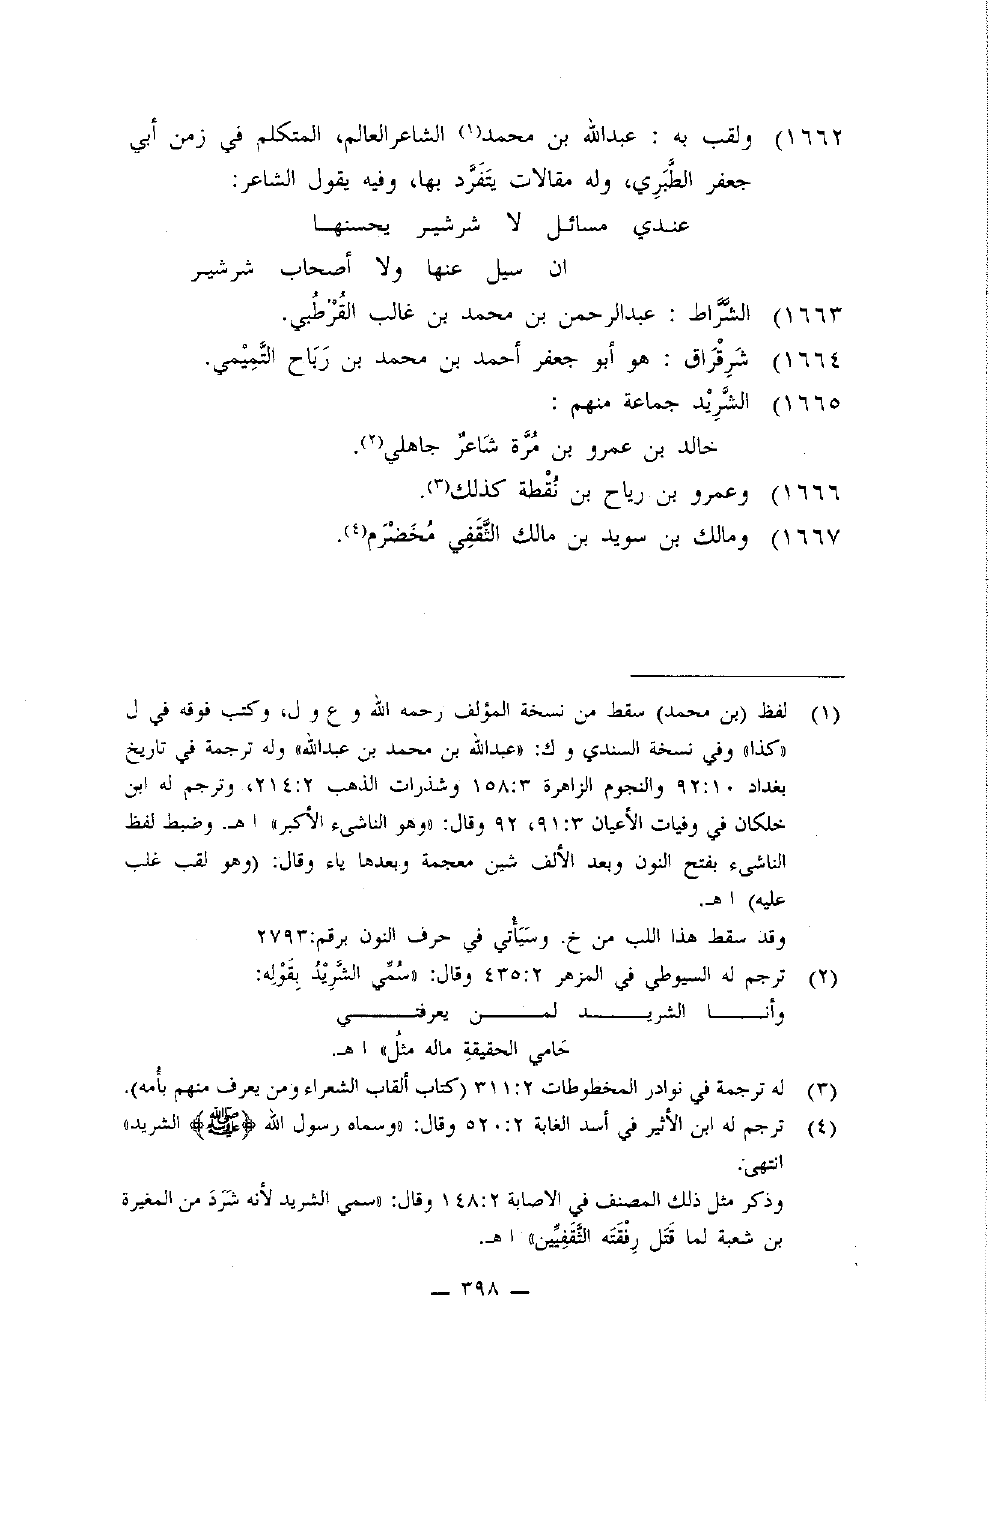 ١٦٦٢) ولقب به : عبدالله بن محمد(١) الشاعر العالم، المتكلم في زمن أبي
جعفر الطَّبَري، وله مقالات يتَفَرَّد بها، وفيه يقول الشاعر:
عندي مسائل لا شرشير يحسنها
ان سيل عنها ولا أصحاب شرشير
١٦٦٣) الشَّرَّاط : عبدالرحمن بن محمد بن غالب القُرْطُبي.
١٦٦٤) شَرِقْرَاق : هو أبو جعفر أحمد بن محمد بن رَبَاح التَّمِيْمي.
١٦٦٥) الشَّرِيْد جماعة منهم :
خالد بن عمرو بن مُرَّة شَاعرٌ جاهلي(٢).
١٦٦٦) وعمرو بن رياح بن نُقْطة كذلك(٣).
١٦٦٧) ومالك بن سويد بن مالك الثَّقَفِي مُخَضْرَم(٤).
(١) لفظ (بن محمد) سقط من نسخة المؤلف رحمه الله و ع و ل، وكتب فوقه في ل
«كذا» وفي نسخة السندي و ك: «عبدالله بن محمد بن عبدالله» وله ترجمة في تاريخ
بغداد ٩٢:١٠ والنجوم الزاهرة ١٥٨:٣ وشذرات الذهب ٢١٤:٢، وترجم له ابن
خلكان في وفيات الأعيان ٩١:٣، ٩٢ وقال: «وهو الناشىء الأكبر» ا هـ. وضبط لفظ
الناشىء بفتح النون وبعد الألف شين معجمة وبعدها ياء وقال: (وهو لقب غلب
عليه) ا هـ.
وقد سقط هذا اللب من خ. وسَيَأْتي في حرف النون برقم:٢٧٩٣
(٢) ترجم له السيوطي في المزهر ٤٣٥:٢ وقال: «سُمِّي الشَّرِيْدُ بِقَوْلِه:
وأنـــا الشريـــد لمـــن يعرفنـــي
حَامي الحقيقةِ ماله مثلُ» ا هـ.
(٣) له ترجمة في نوادر المخطوطات ٣١١:٢ (كتاب ألقاب الشعراء ومن يعرف منهم بأُمه).
(٤) ترجم له ابن الأثير في أسد الغابة ٥٢٠:٢ وقال: «وسماه رسول الله ﴿ﷺ﴾ الشريد»
انتهى.
وذكر مثل ذلك المصنف في الاصابة ١٤٨:٢ وقال: «سمي الشريد لأنه شَرَدَ من المغيرة
بن شعبة لما قَتَل رِفْقَته الثَّقَفِيِّين» ا هـ.
— ٣٩٨ —